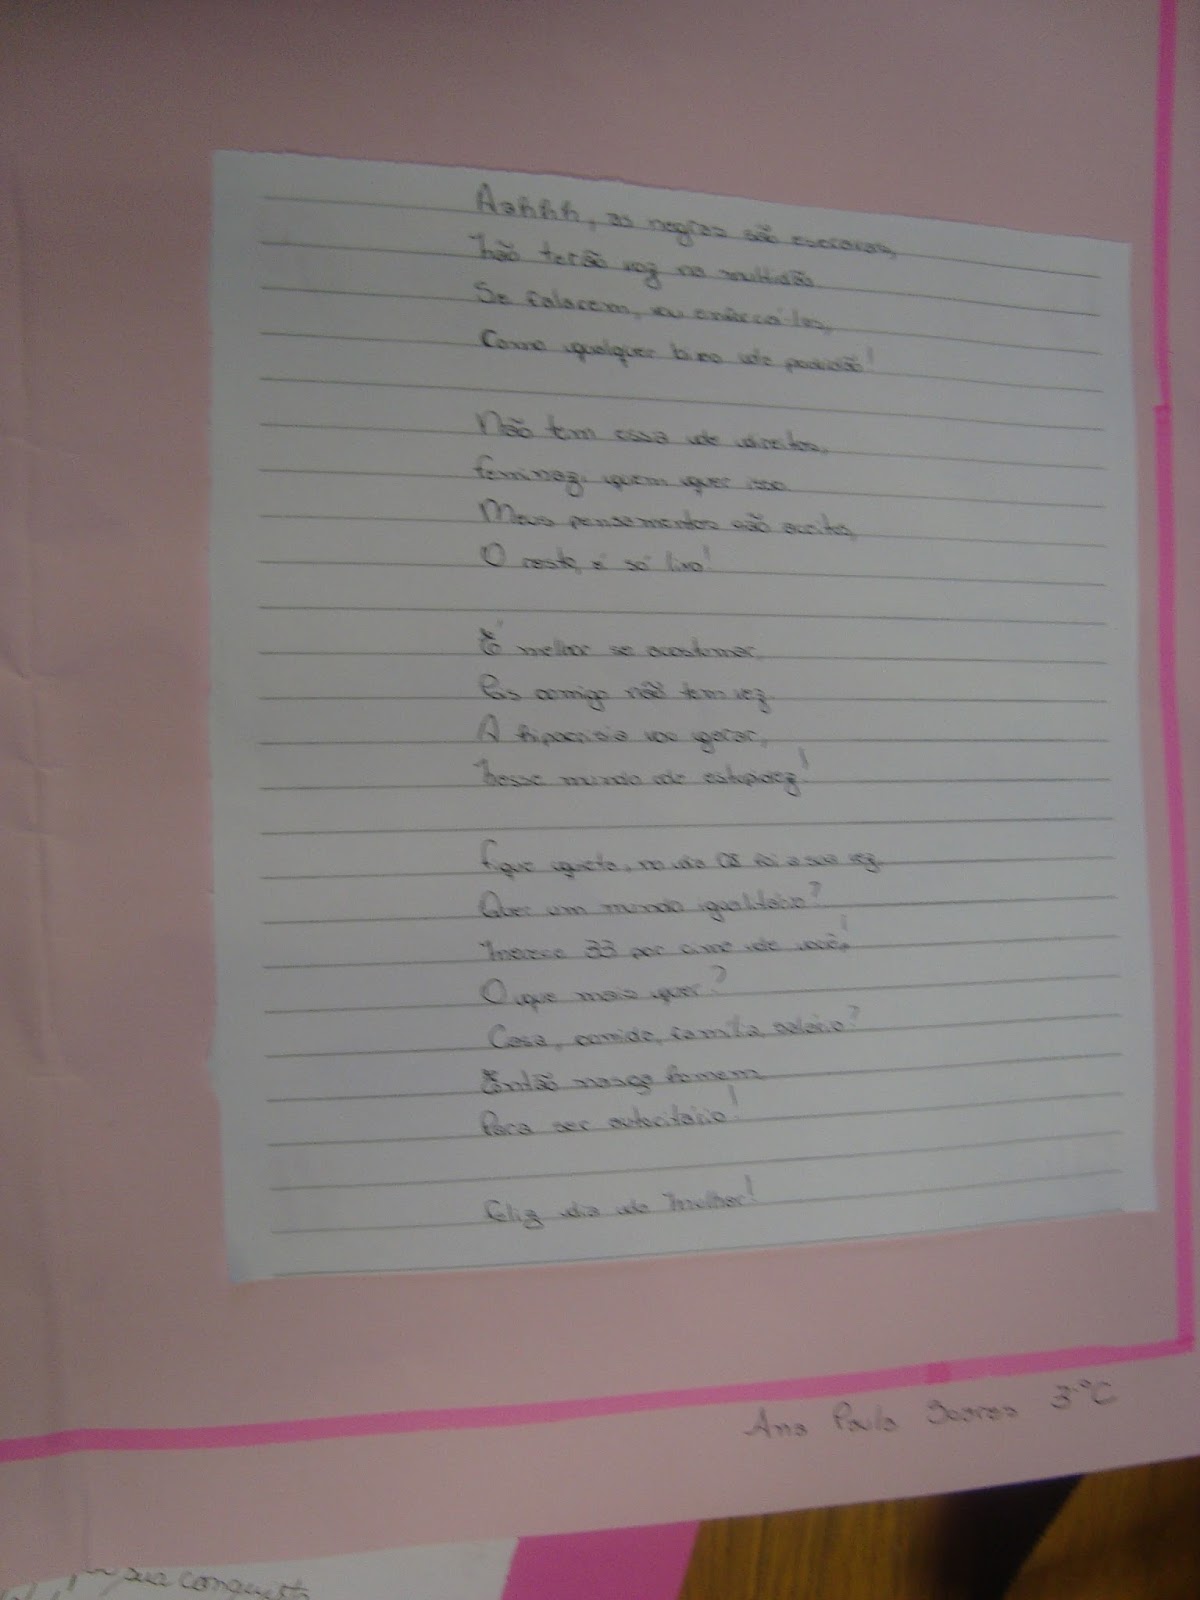 Aahhh, as negras são escravas,
Não terão voz na multidão
Se falarem, vou enforcá-las,
Como qualquer bixo de podridão!
Não tem essa de direitos,
feminaz, quem quer isso
Meus pensamentos são aceitos,
O resto, é só lixo!
É melhor se acostumar,
Pois comigo não tem vez.
A hipocrisia vou gerar,
Nesse mundo de estupidez!
Fique quieta, no dia 08 foi a sua vez.
Quer um mundo igualitário?
Merece 33 por cima de você!
O que mais quer?
Casa, comida, família, salário?
Então nasça homem
Para ser autoritário!
Feliz dia da Mulher!
Ana Paula Soares 3ºC
sua conquista